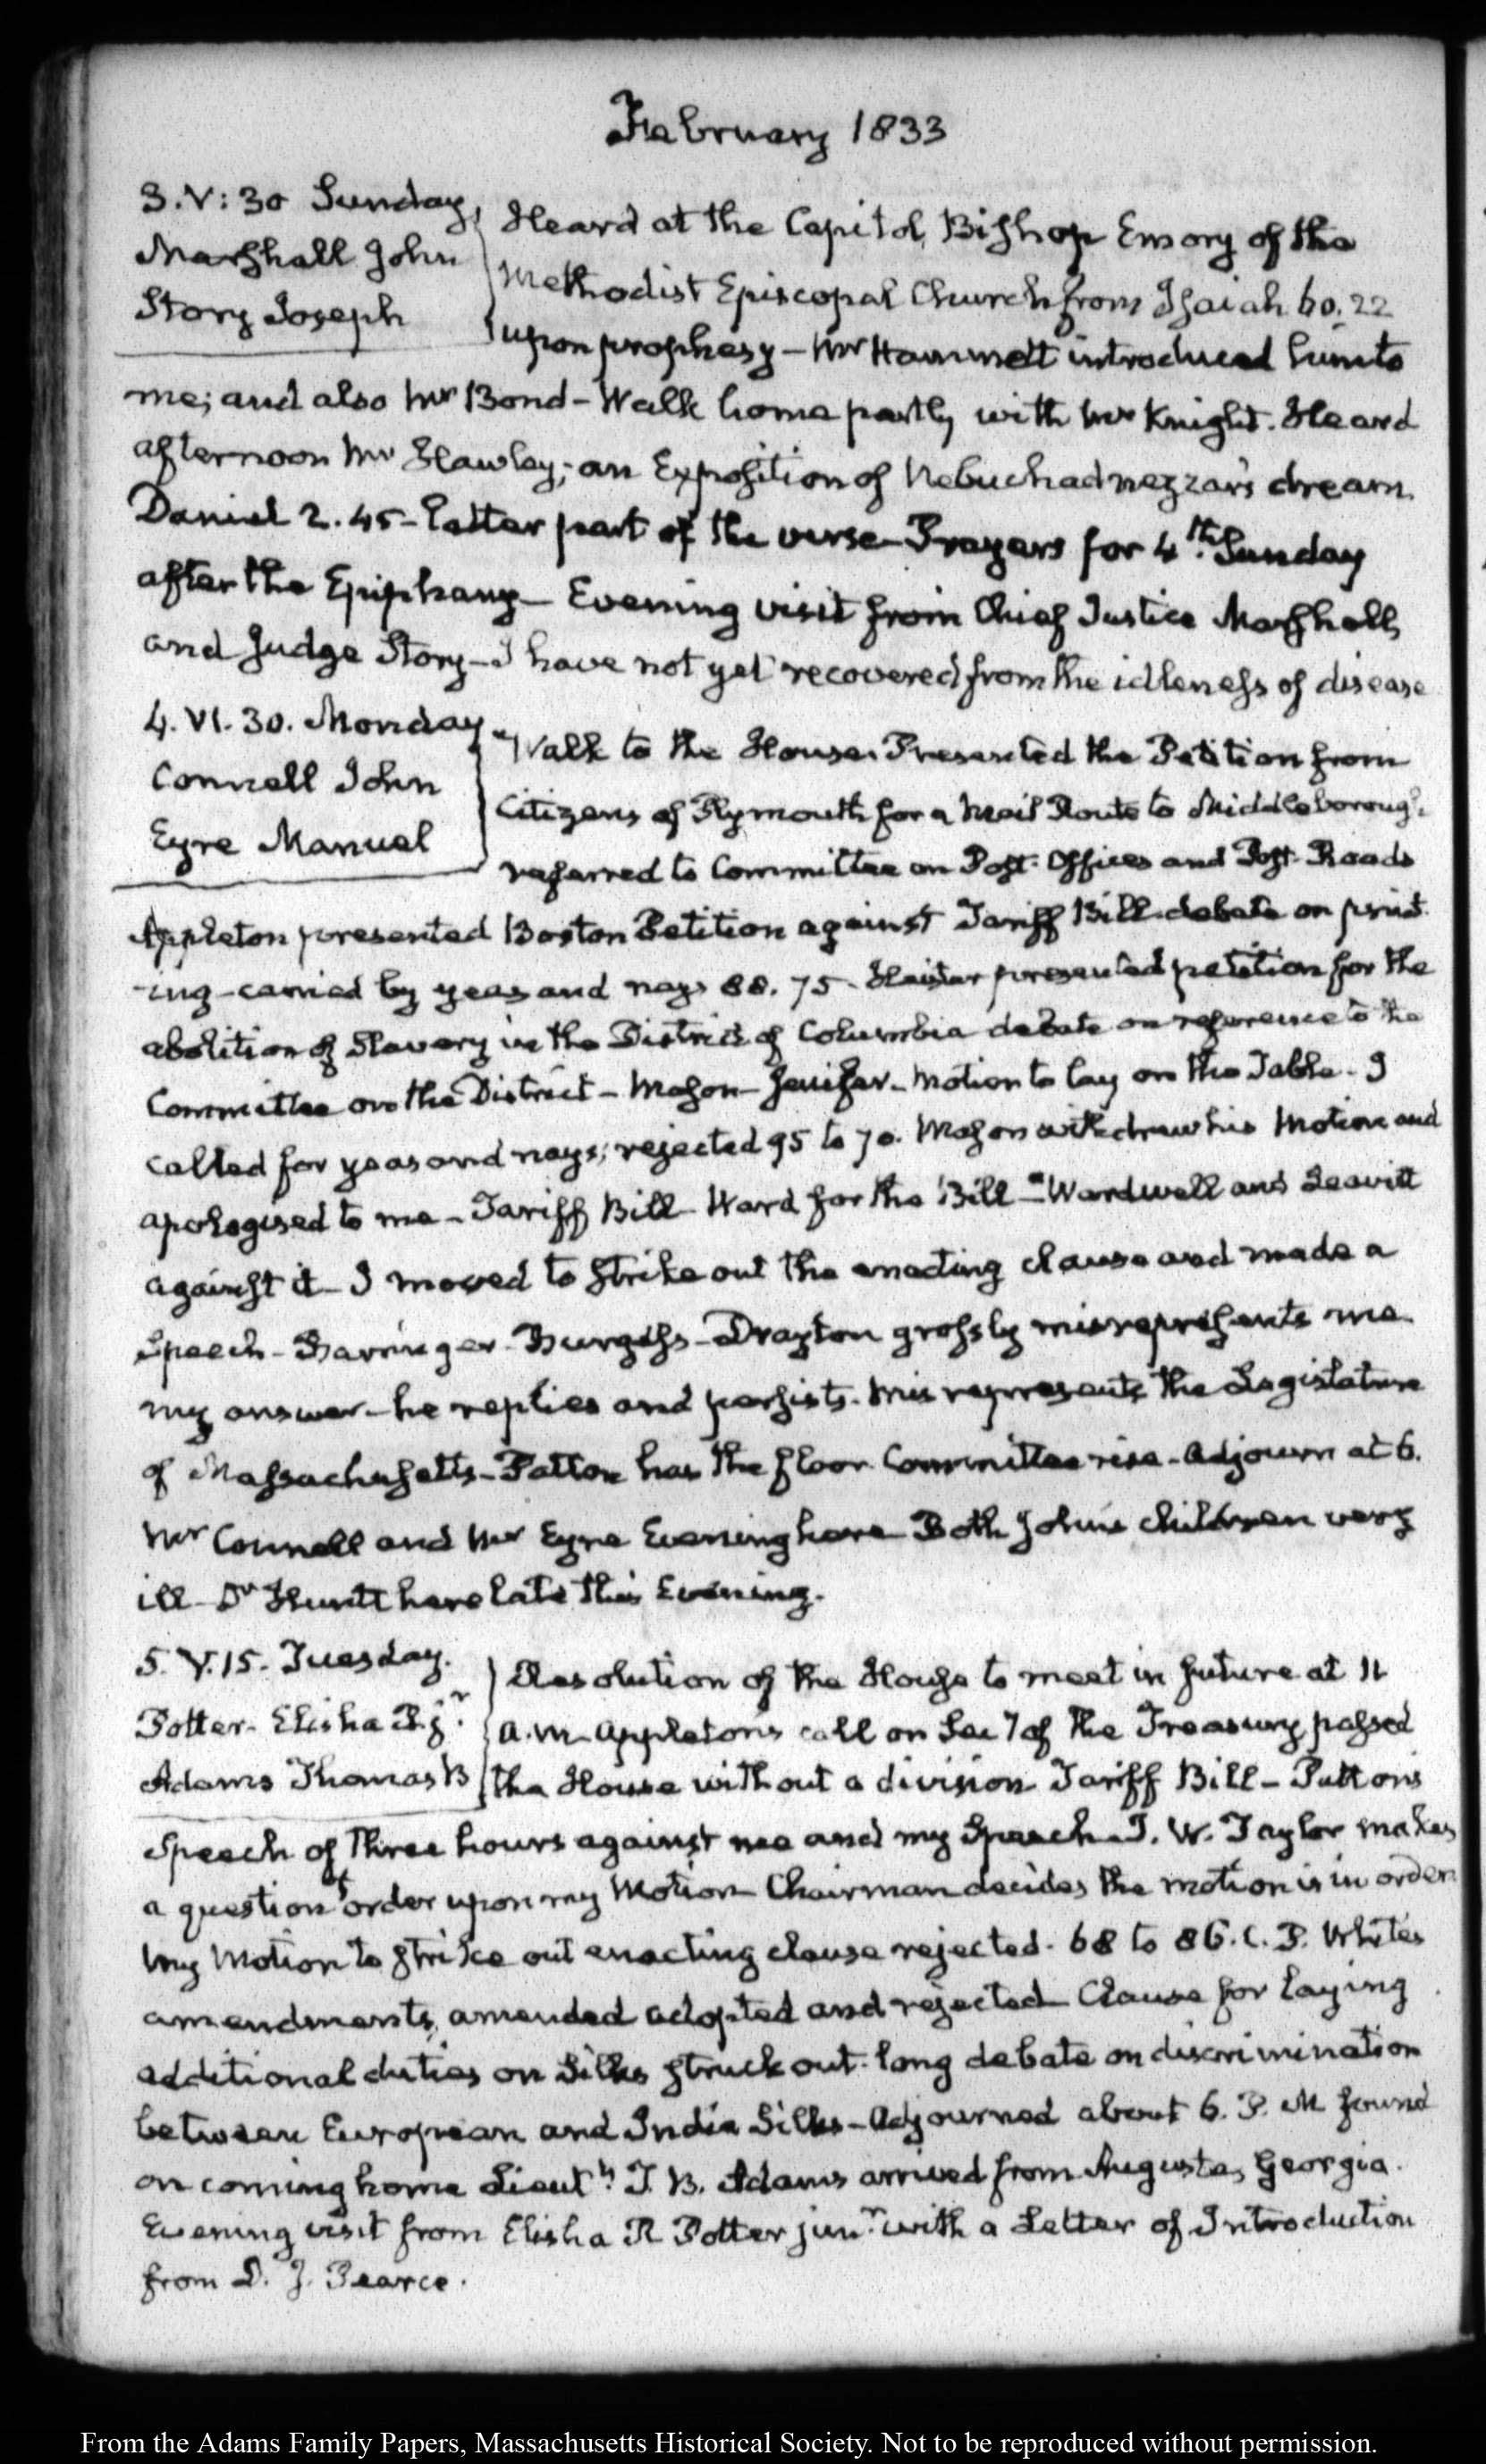 February 1833
3. V: 30 Sunday,
Marshall John
Story Joseph
Heard at the Capitol, Bishop Emory of the
Methodist Episcopal Church from Isaiah 60. 22
upon prophesy – Mr Hammett introduced him to
me; and also Mr Bond – Walk home partly with Mr Knight. Heard
afternoon Mr Hawley; an Exposition of Nebuchadnezzar's dream.
Daniel 2. 45 – latter part of the verse – Prayers for 4th. Sunday
after the Epiphany – Evening visit from Chief Justice Marshall,
and Judge Story – I have not yet recovered from the idleness of disease
4. VI. 30. Monday
Connell John
Eyre Manuel
Walk to the House. Presented the Petition from
Citizens of Plymouth for a Mail Route to Middleborough.
referred to Committee on Post-Offices and Post-Roads
Appleton presented Boston Petition against Tariff Bill – debate on print
-ing – carried by yeas and nays 88. 75. Heister presented petition for the
abolition of Slavery in the District of Columbia debate on reference to the
Committee on the District – Mason – Jenifer – Motion to lay on the Table – I
called for yeas and nays; rejected 95 to 70. Mason withdraw his Motion and
apologised to me – Tariff Bill – Ward for the Bill – Wardwell and Leavitt
against it – I moved to strike out the enacting clause and made a
Speech – Barringer – Burgess – Drayton grossly misrepresents me
my answer – he replies and persists. Misrepresents the Legislature
of Massachusetts – Patton has the floor Committee rise – Adjourn at 6.
Mr Connell and Mr Eyre Evening here Both John's children very
ill – Dr Huntt here late this Evening.
5. V. 15. Tuesday.
Potter – Elisha R. jr.
Adams Thomas B
Resolution of the House to meet in future at 11
A.M – Appleton's call on Secy of the Treasury passed
the House without a division Tariff Bill – Patton's
Speech of three hours against me and my Speech. J. W. Taylor makes
a question of order upon my Motion Chairman decides the motion is in order
My Motion to strike out enacting clause rejected. 68 to 86. C. P. White's
amendments, amended adopted and rejected – Clause for laying
additional duties on Silks struck out. long debate on discrimination
between European and India Silks – Adjourned about 6. P. M found
on coming home Lieutt. T. B. Adams arrived from Augusta, Georgia.
Evening visit from Elisha R Potter junr. with a Letter of Introduction
from D. J. Pearce.
From the Adams Family Papers, Massachusetts Historical Society. Not to be reproduced without permission.